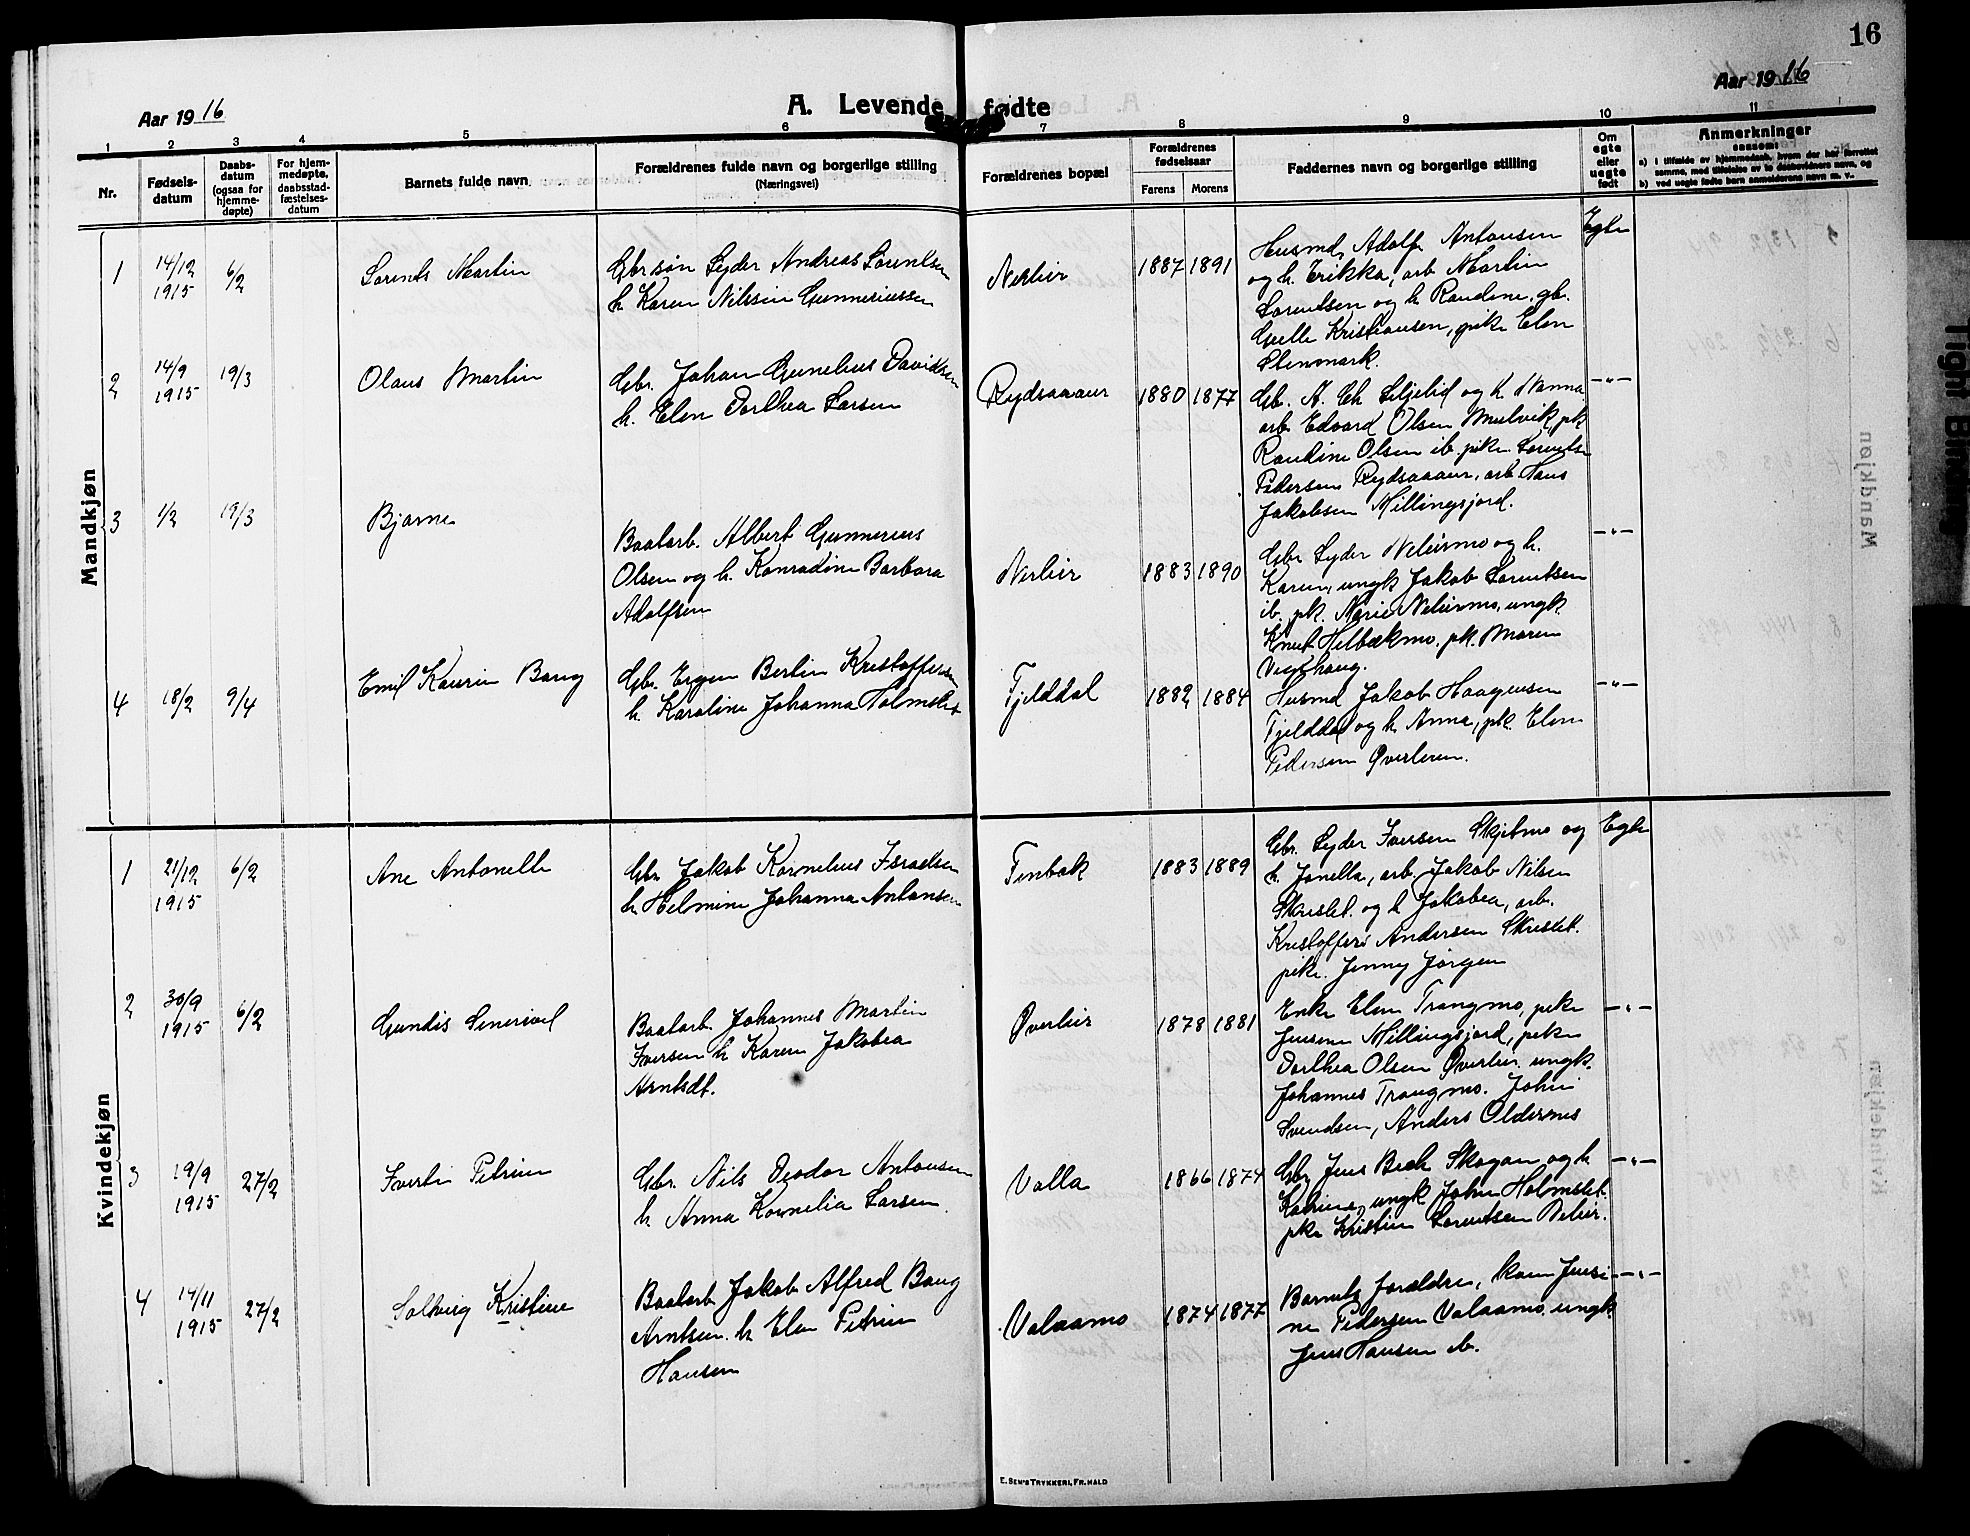 16
Aar 1916
A. Levende fødte
Aar 1916
1 2 3 4 5 6 7 8 9 10 11
Nr.
Fødsels-
datum
Daabs-
datum
(ogsaa for
hjemme-
døpte)
For hjem-
medøpte,
daabsstad-
fæstelses-
datum
Barnets fulde navn
Forældrenes fulde navn og borgerlige stilling
(Næringsvei)
Forældrenes bopæl
Forældrenes
fødselsaar
Farens Morens
Faddernes navn og borgerlige stilling
Om
egte
eller
uegte
født
Anmerkninger
saasom:
a) i tilfælde av hjemmedaab, hvem der har forrettet
samme, med tilføielse av to daabsvidners navn, og
b) ved uegte fødte barn anmelderens navn m. v.
Mandkjøn
1
14/12
1915
6/2
Lorents Martin
Gbr.søn Lyder Andreas Lorentsen
h. Karen Nilssin Gunneriussen
Nerleir
1887 1891
Husmd, Adolf Antonsen
og h. Erikka, arb Martin
Lorentsen og h Randine, gb.
Kristiansen, pike Elen
Stenmark.
Egte
2
14/9
1915
19/3
Olaus Martin
Gbr. Johan Gunelius Davidsen
h. Elen Dorthea Larsen
Rydsaaaur
1880 1877
Gb. A. Ch Liljelid og h Nanna
arb Edvard Olsen Mulvik, pk
Randine Olsen ib. pike Lorentse
Pedersen Rydsaaaur, arb Hans
Jakobsen Millingsjord.
-"-
3
1/2
19/3
Bjarne
Baatarb. Albert Gunnerius
Olsen og h. Konradine Barbara
Adolfsen
Nerleir
1883 1890
Gbr Lyder Neleirmo og h.
Karen, ungk Jakob Lorentsen
ib. pk. Marie Neleirmo, ungk
Knut Helbækmo. pk. Maren
Vegthaug.
-"-
4
18/2
9/4
Emil Kaurin Bang
Gbr. Ergen Berlin Kristoffersen
h. Karoline Johanna Holmslet
Fjelddal
1882 1884
Husmd Jakob Haagensen
Fjelddal og h Anna, pk. Elen
Pedersen Øverleren.
-"-
Kvindekjøn
1
21/12
1915
6/2
Ane Antonelle
Gbr Jakob Kornelius Israelsen
h Helmine Johanna Antonsen
Tenbak
1883 1889
Gbr. Lyder Iversen Skjelmo og
h. Jonella, arb. Jakob Nilsen
Skreslet. og h Jakobea, arb.
Kristoffer Andersen Skreslet.
pike. Jenny Jørgen
Egte
2
30/9
1915
6/2
Gundis
Baatarb. Johannes Martin
Iversen h Karen Jakobea
Arntsdt.
Øverleir
1878 1881
Enke Elen Trangmo, pike
Jensine Millingsjord, pike
Dorthea Olsen Øverleir. ungk.
Johannes Trangmo. John
Svendsen, Anders Oldernes
-"-
3
19/9
1915
27/2
Petrine
Gbr. Nils Teodor Antonsen
h Anna Kornelia Larsen.
Valla
1866 1874
Gbr Jens Bech Skogan og h
Katrine, ungk John Holmslet.
pike Kristine Lorentsen Neleir.
-"-
4
14/11
1915
27/2
Solveig Kristine
Baatarb Jakob Alfred Bang
Arntsen. h Elen Petrine
Hansen
Valaamo
1874 1877
Barnets foreldre, kone Jensi-
ne Pedersen Valaamo. ungk
Jens Hansen ib.
-"-
E. SEM'S TRYKKERI, FR.HALD
Tight Binding